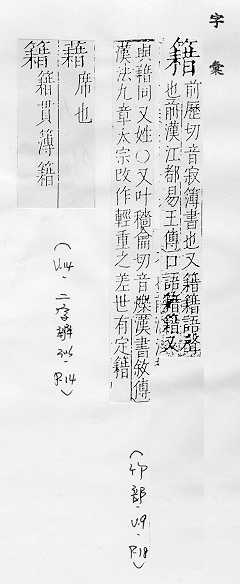 字彙
籍 前歷切音寂簿書也又籍籍語聲
也前漢江都易王傳口語籍籍又
與藉同又姓○又叶穡龠切音爍漢書敘傳
漢法九章太宗改作輕重之差世有定籍
(竹部.V.9.P.18)
藉 席也
籍 籍貫簿籍
(V.14.二字辨.P.14)